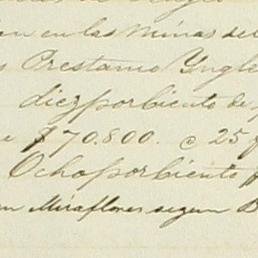 en en las minas del
Prestamo Yngle
diez por ciento de
$70.800. @ 25
Ocho por ciento
en Miraflores segun B